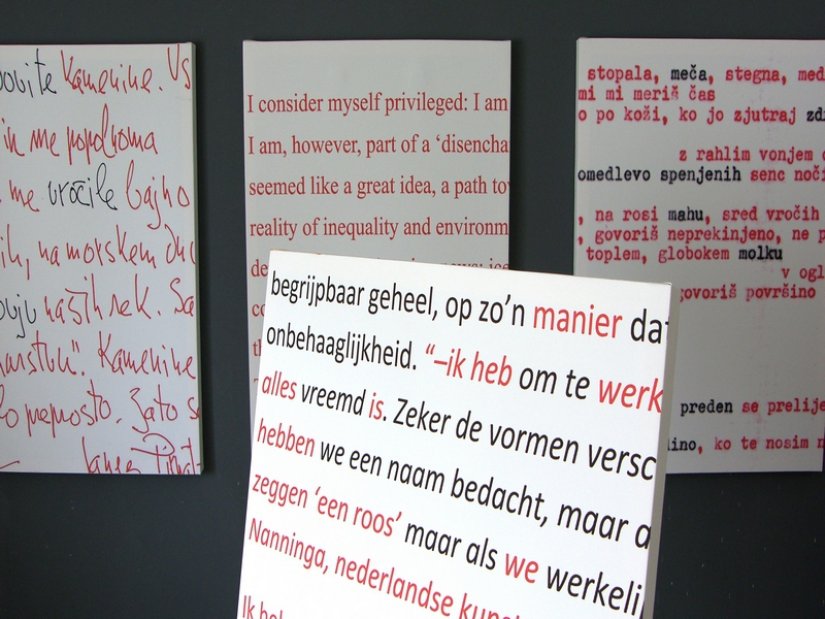 Kamenine. Us
in me popolnoma
me uročile bajno
naših rek. Sa
Kamenine
Zato se
I consider myself privileged: I am
I am, however, part of a ‘disencha
seemed like a great idea, a path to
reality of inequality and environm
stopala, meča, stegna, med
mi mi meriš čas
o po koži, ko jo zjutraj zd
z rahlim vonjem
omedlevo spenjenih senc noči
, na rosi mahu, sred vročih
, govoriš neprekinjeno, ne p
toplem, globokem molku
v ogl
govoriš površino
preden se prelije
ino, ko te nosim n
begrijpbaar geheel, op zo’n manier dat
onbehaaglijkheid. “–ik heb om te werk
alles vreemd is. Zeker de vormen versc
hebben we een naam bedacht, maar a
zeggen ‘een roos’ maar als we werkeli
Nanninga, nederlandse kuns
Ik he